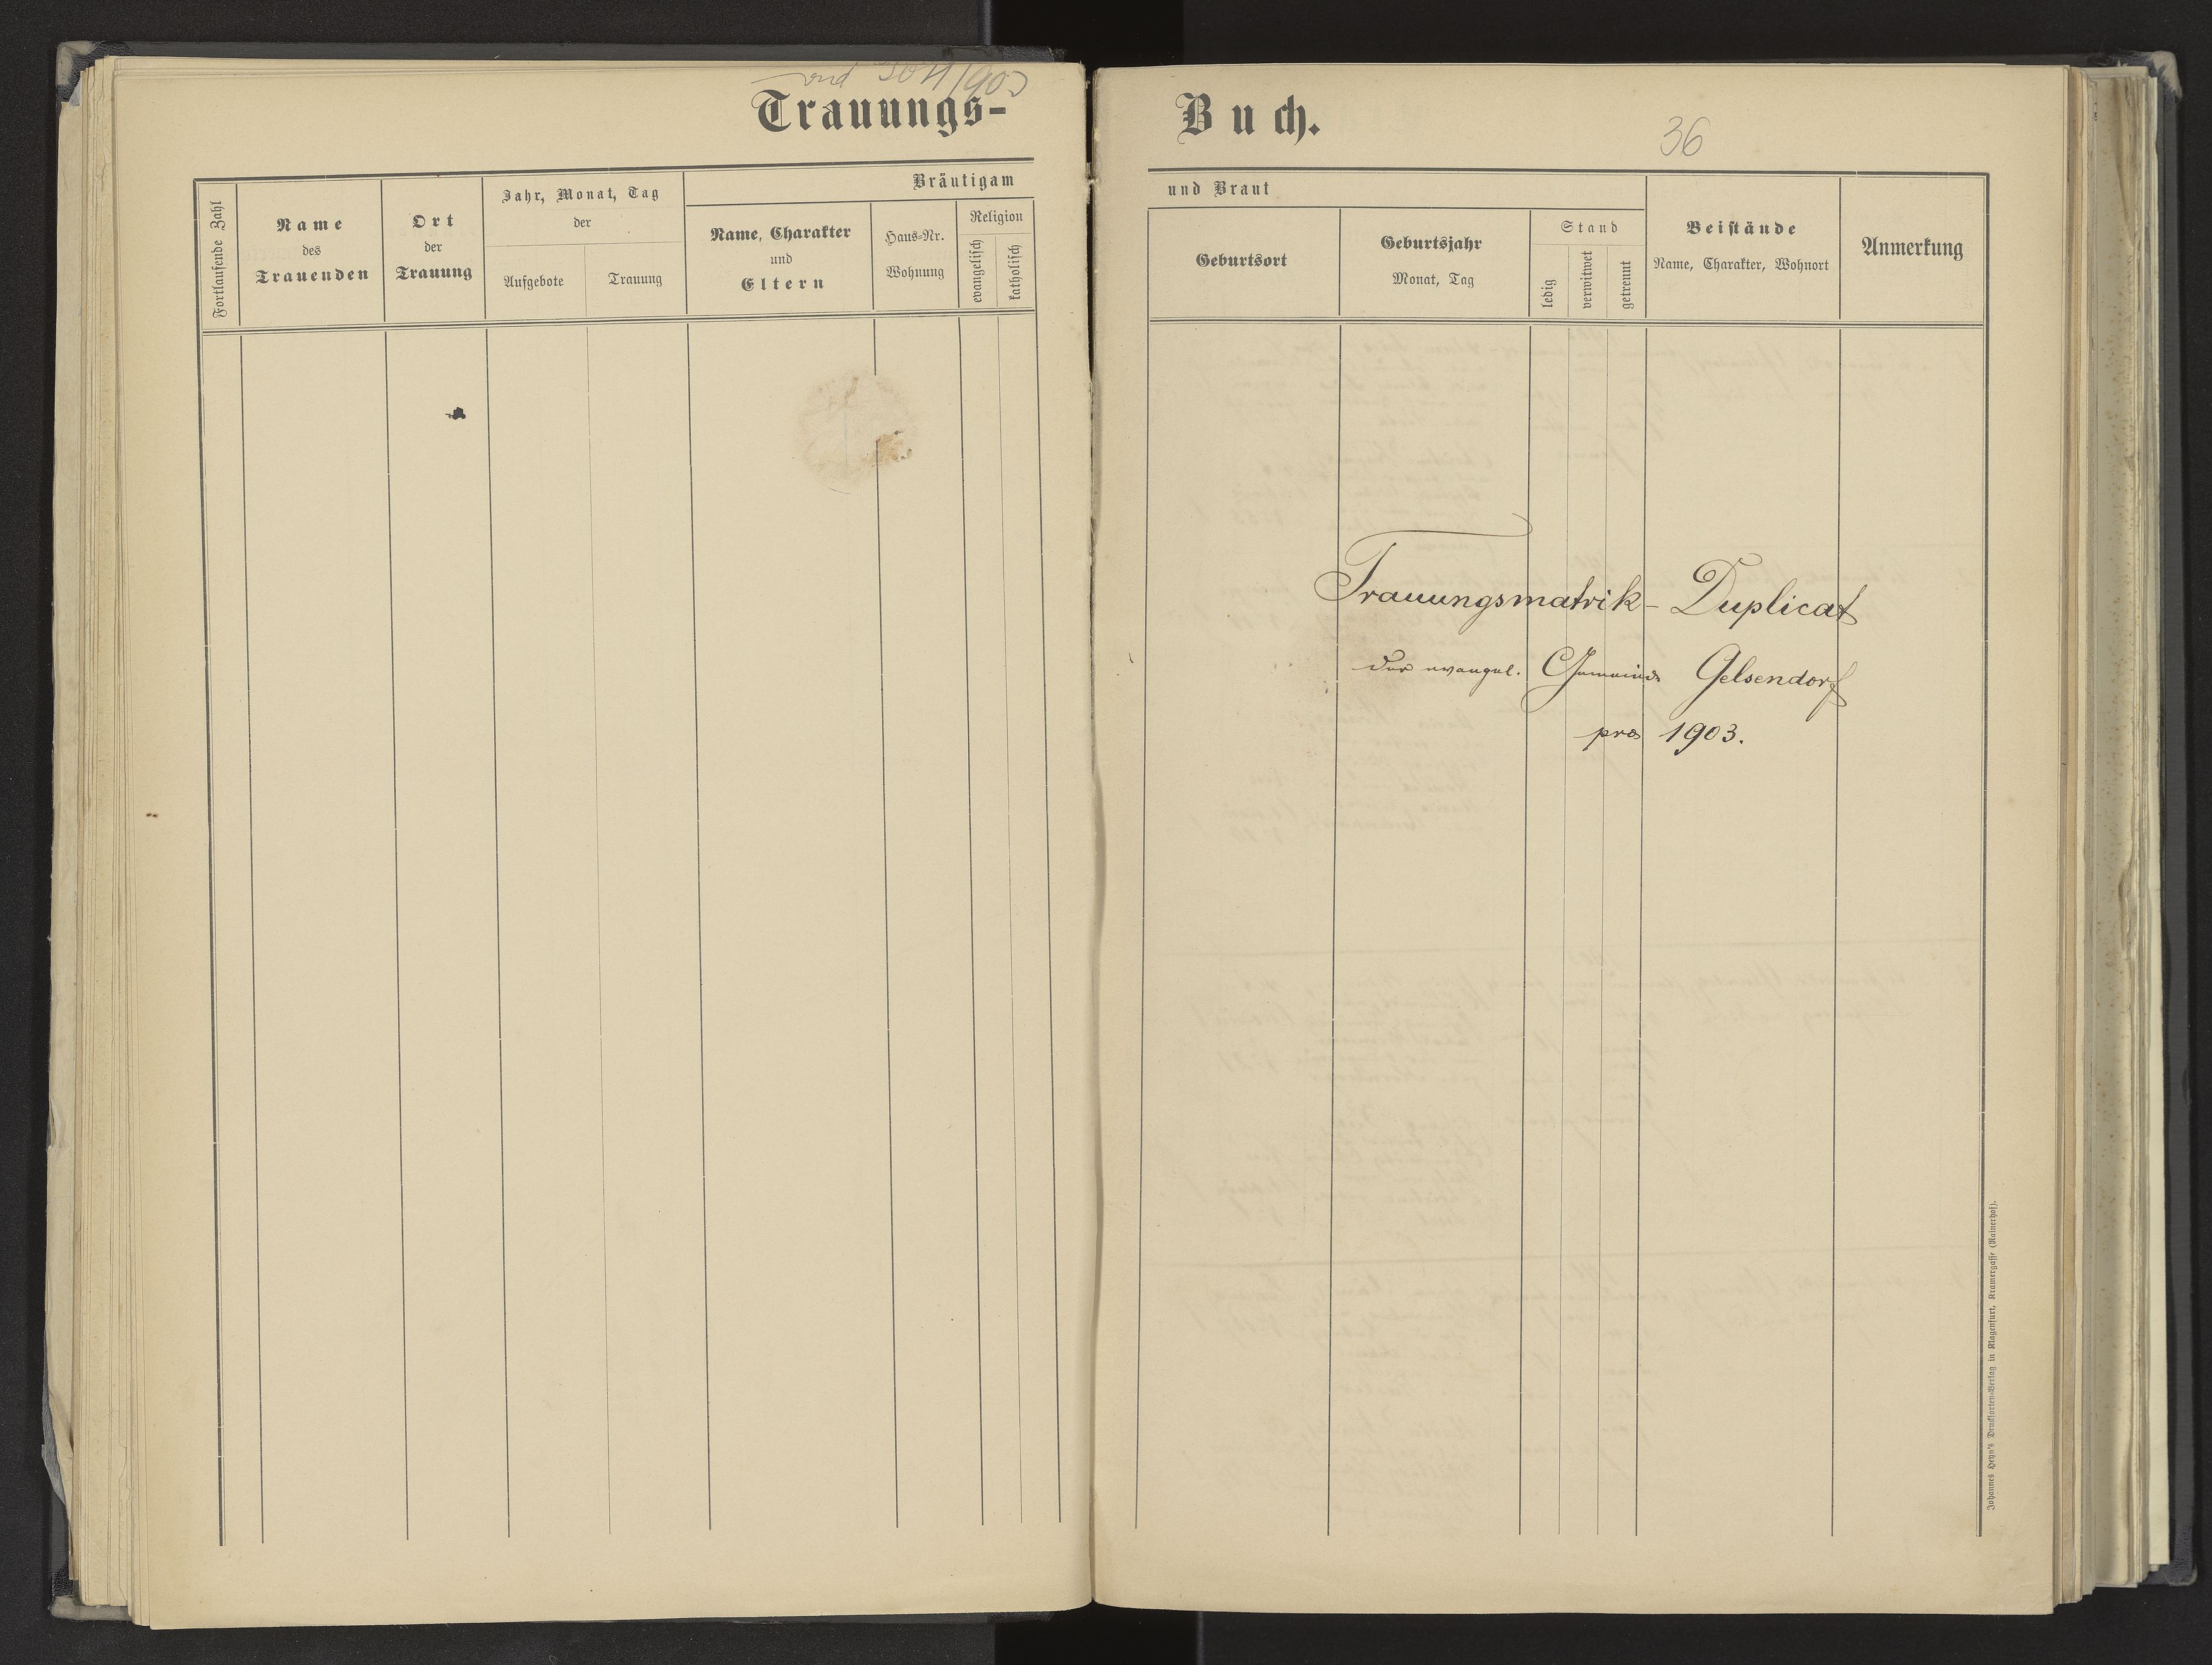 Trauungs-
Fortlaufende Zahl
Name
des
Trauenden
Ort
der
Trauung
Jahr, Monat, Tag
der
Aufgebote
Trauung
Bräutigam
Name, Charakter
und
Eltern
Haus-Nr.
Wohnung
Religion
evangelisch
katholisch
Buch.
36
und Braut
Geburtsort
Geburtsjahr
Monat, Tag
Stand
ledig
verwitwet
getrennt
Beistände
Name, Charakter, Wohnort
Anmerkung
Trauungsmatrik- Duplicat
der evangel. Gemeinde Gelsendorf
pro 1903.
Johannes Heyn's Drucksorten-Verlag in Klagenfurt, Kramergasse (Rainerhof).